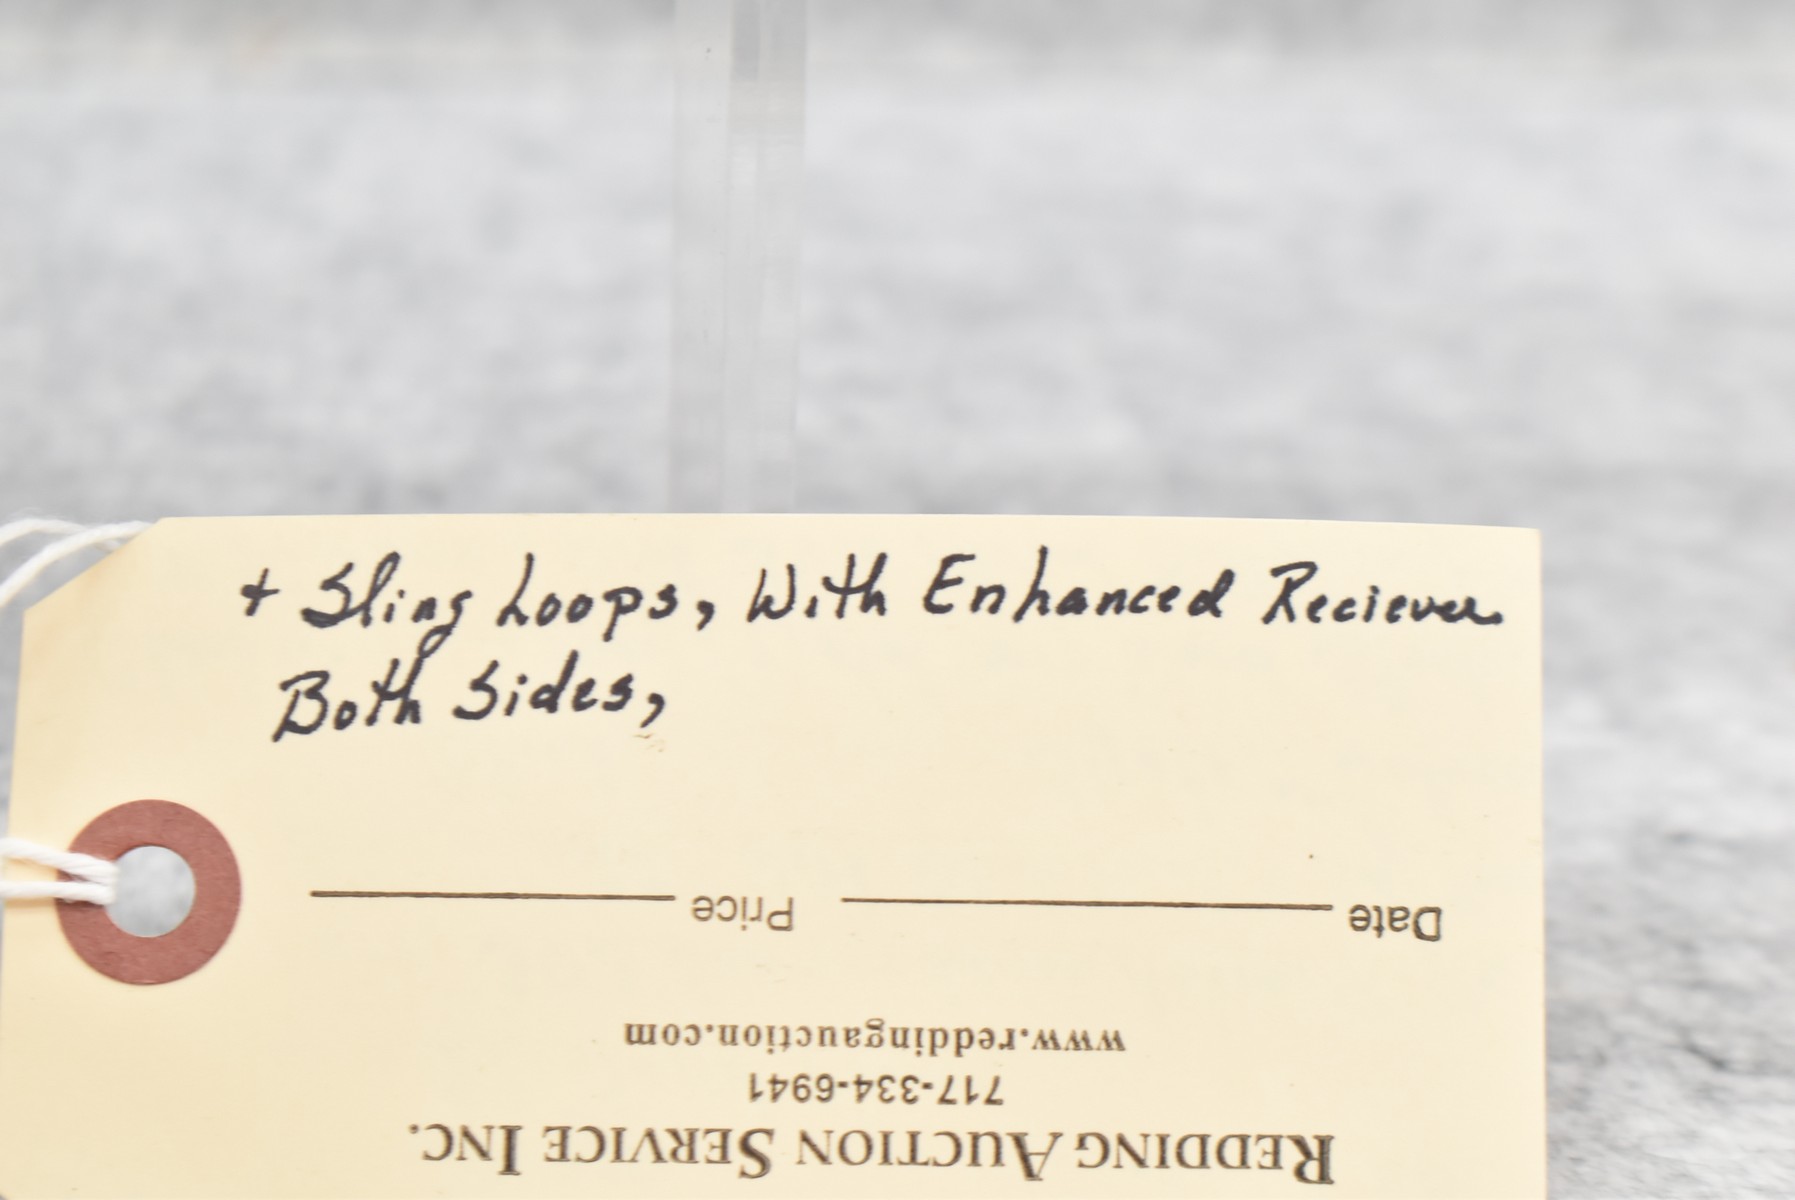 + Sling Loops, With Enhanced Reciever
Both Sides,
REDDING AUCTION SERVICE INC.
717-334-6941
www.reddingauction.com
Date Price